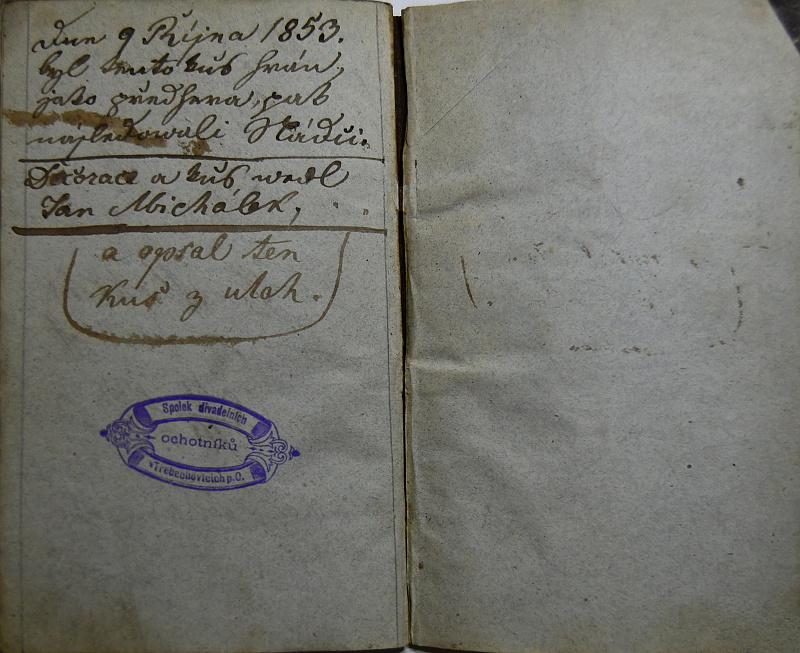 Dne 9 Října 1853.
byl tento kus hrán,
jako předhra, pak
následowali
Dekorace a kus wedl
Jan Michálek,
a opsal ten
Kus z úloh.
Spolek divadelních
ochotníků
v Třebechovicích p. O.